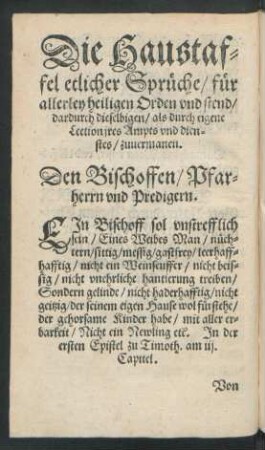 Die Haustaf-
fel etlicher Sprüche/ für
allerley heiligen Orden vnd stend/
dardurch dieselbigen/ als durch eigene
Lection jres Ampts vnd dien-
stes/ zuuermanen.
Den Bischoffen/ Pfar-
herrn vnd Predigern.
EIn Bischoff sol vnstrefflich
sein/ Eines Weibes Man/ nüch-
tern/ sittig/ messig/ gastfrey/ leerhaff-
hafftig/ nicht ein Weinseuffer/ nicht beis-
sig/ nicht vnehrliche hantierung treiben/
Sondern gelindt/ nicht haderhafftig/ nicht
geitzig/ der seinem eigen Hause wol fürstehe/
der gehorsame Kinder habe/ mit aller er-
barkeit/ Nicht ein Newling etc. In der
ersten Epistel zu Timoth. am iij.
Capitel.
Von